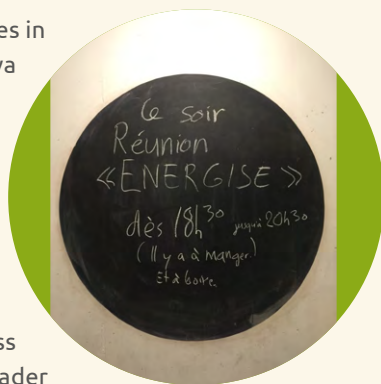 es in
va
Ce soir
Réunion
«ENERGISE»
dès 18h30 jusqu'à 20h30
(Il y a à manger)
Et à boire.
ss
ader